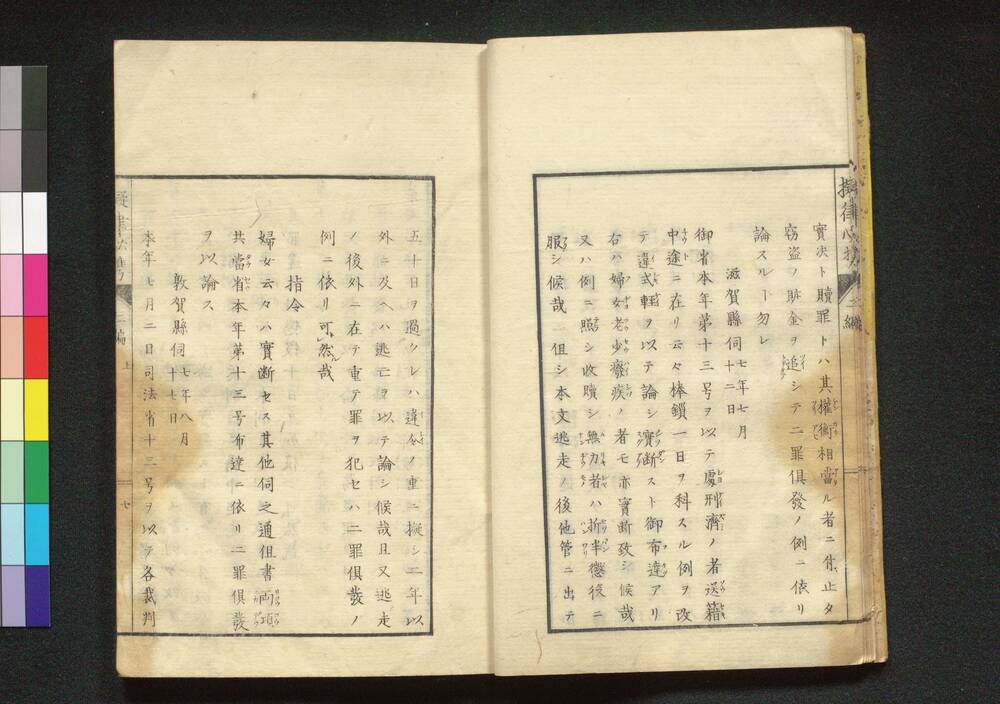 實決ト贖罪トハ其權衡相當ル者ニ付止タ
窃盗ノ贓金ヲ追シテ二罪俱發ノ例ニ依リ
論スルー勿レ
滋賀縣伺 七年七月十二日
御省本年第十三号ヲ以テ處刑濟ノ者送籍
中途ニ在リ云々棒鎖一日ヲ科スル例ヲ改
テ違式輕ヲ以テ論シ實断スト御布達アリ
右ハ婦女老少癈疾ノ者モ亦實断致シ候哉
又ハ例ニ照シ收贖シ無力者ハ折半懲役ニ
服シ候哉 但シ本文逃走ノ後他管ニ出テ
五十日ヲ過クレハ違令ノ重ニ擬シ二年以
外ニ及ヘハ逃亡ヲ以テ論シ候哉且又逃走
ノ後外ニ在テ重テ罪ヲ犯セハ二罪俱發ノ
例ニ依リ可然哉
指令
婦女云々ハ實断セス其他伺之通但書両項
共當省本年第十三号布達ニ依リ二罪俱發
ヲ以論ス
敦賀縣伺 七年八月十七日
本年七月二日司法省十三号ヲ以テ各裁判
上
七